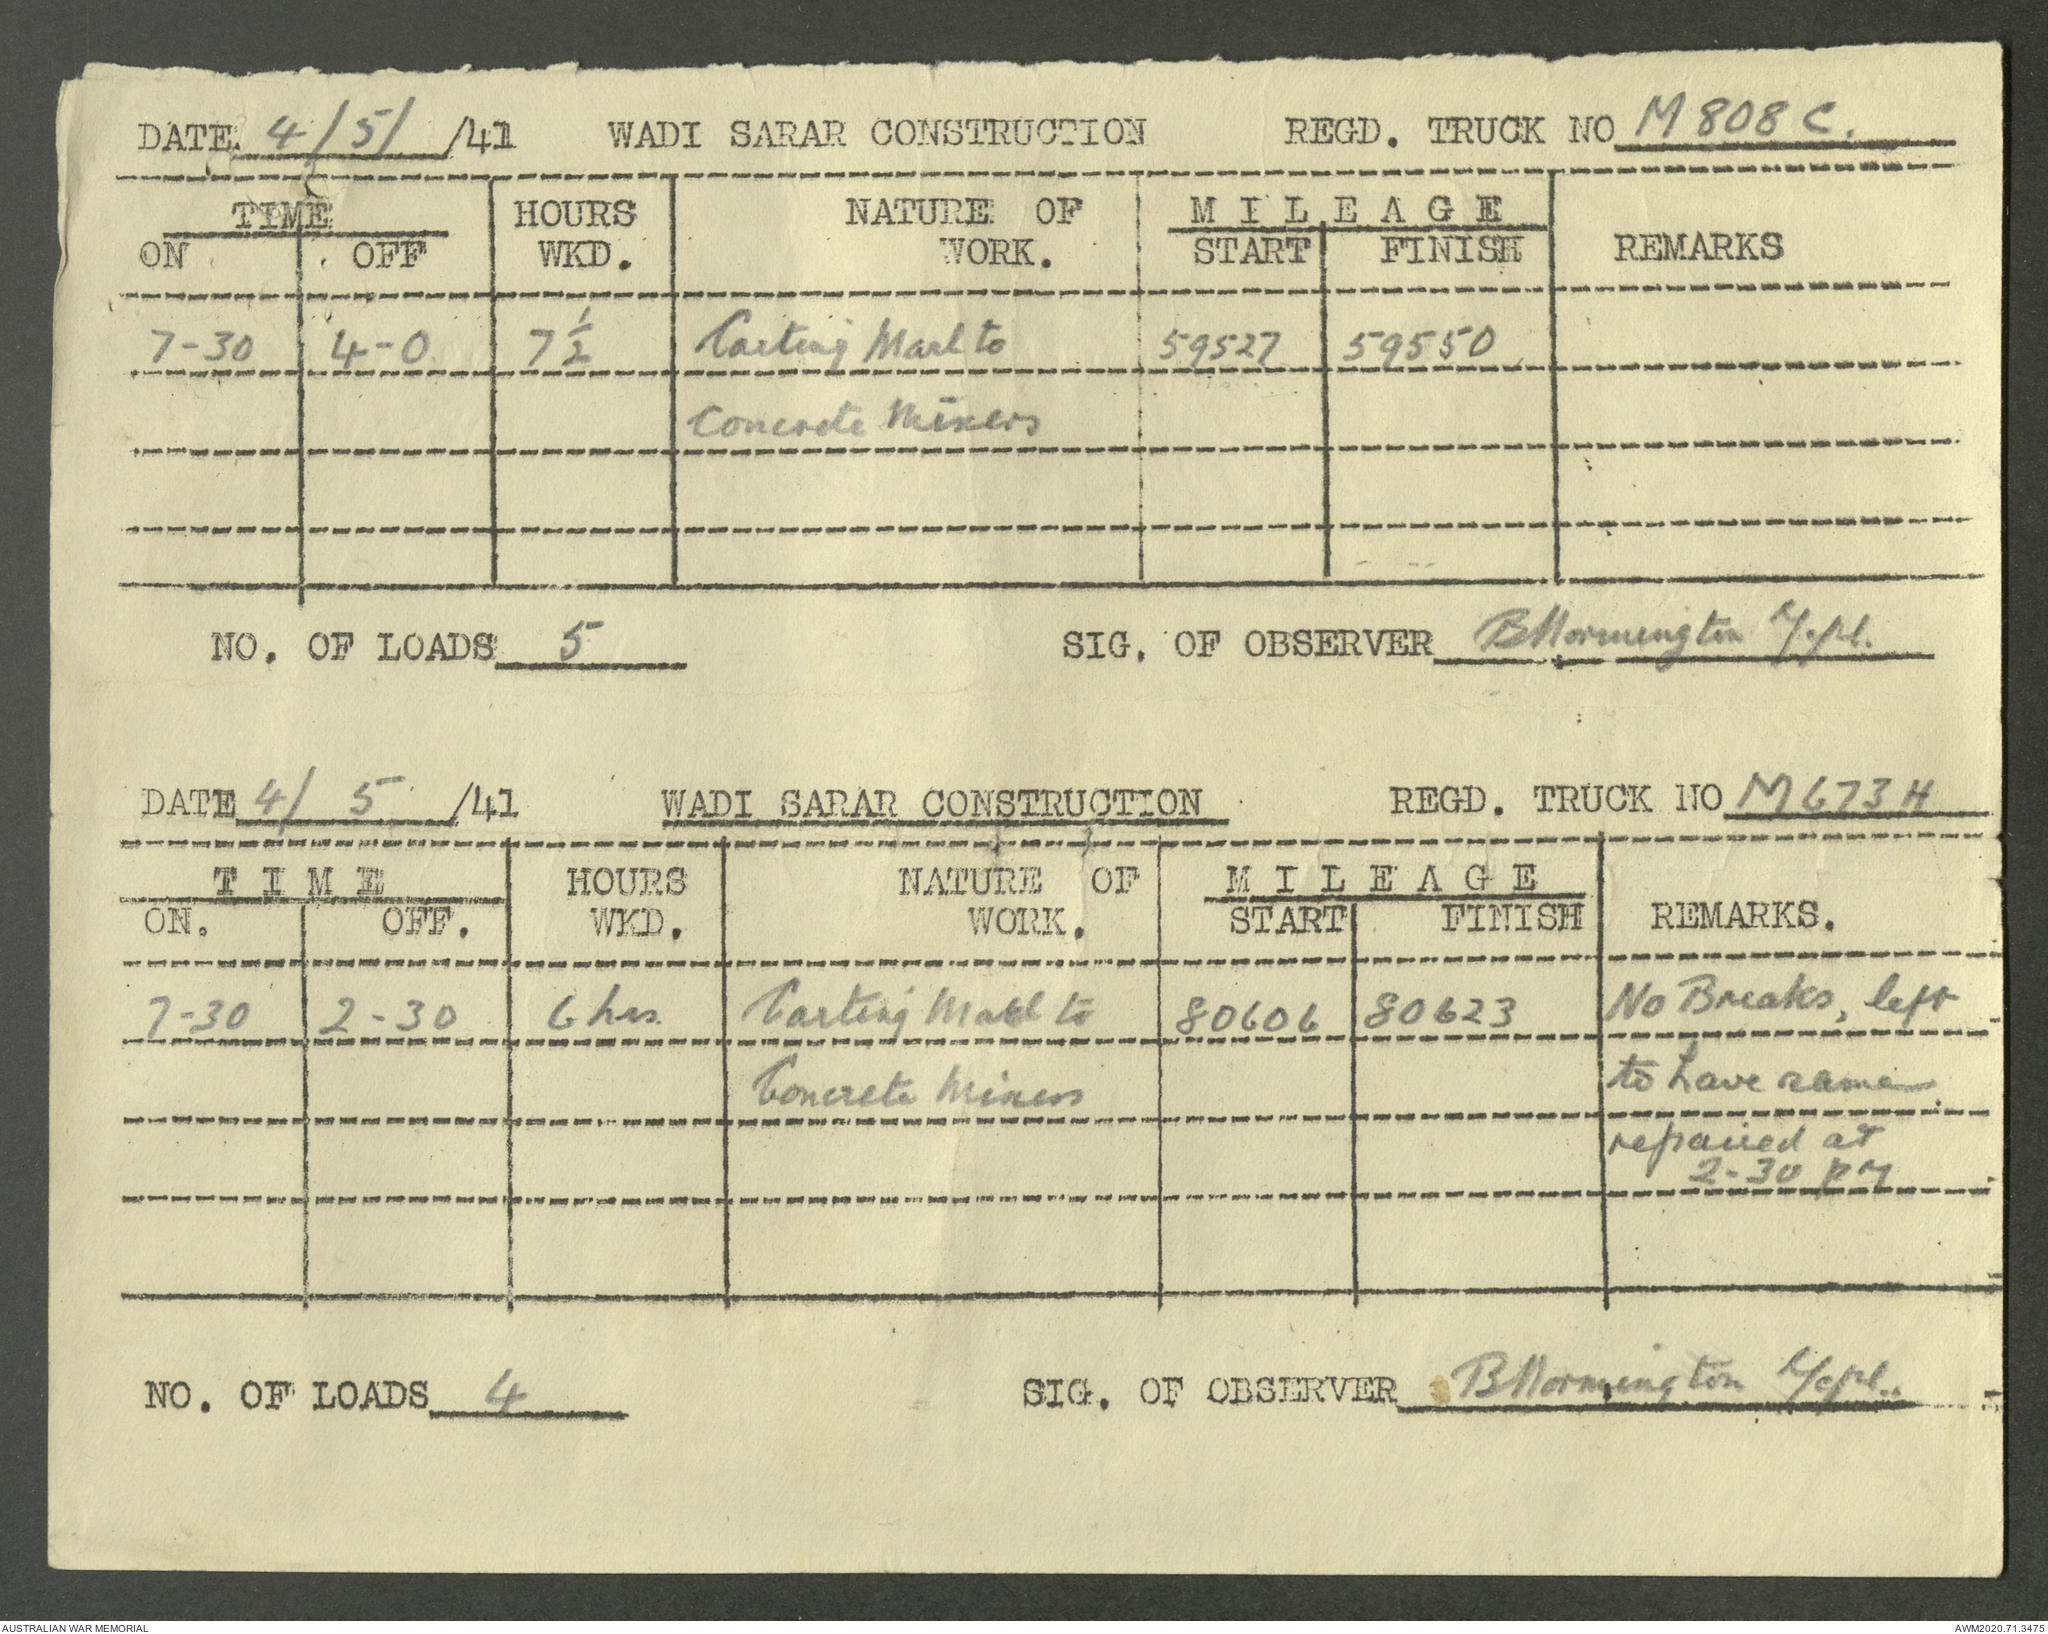 DATE 4/5/ /41 WADI SARAR CONSTRUCTION REGD. TRUCK NO M 808 C.
TIME HOURS NATURE OF MILEAGE
ON OFF WKD. WORK. START FINISH REMARKS
7-30 4-0 7 1/2 Carting Marl to 59527 59550
Concrete Mixers
NO. OF LOADS 5 SIG. OF OBSERVER B Mornington L/Cpl.
DATE 4/ 5 /41 WADI SARAR CONSTRUCTION REGD. TRUCK NO M 673 H
TIME HOURS NATURE OF MILEAGE
ON. OFF. WKD. WORK. START FINISH REMARKS.
7-30 2-30 6 hrs. Carting Marl to 80606 80623 No Breaks, left
Concrete Mixers to have same
repaired at
2-30 PM
NO. OF LOADS 4 SIG. OF OBSERVER B Mornington L/Cpl.
AUSTRALIAN WAR MEMORIAL AWM2020.71.3475